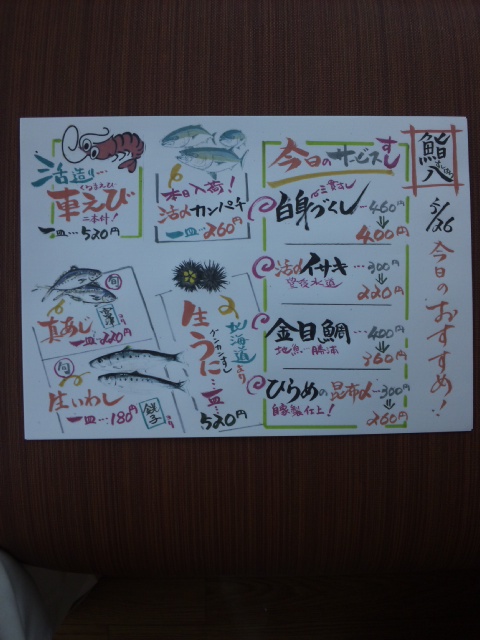 鮨八
5/26
今日のおすすめ!!
今日のサービスすし
白身づくし 460円
⇓
400円
活〆イサキ…300円
豊後水道
⇓
220円
金目鯛…400円
地魚 勝浦
⇓
360円
ひらめの昆布〆…300円
自家製仕上!
⇓
260円
本日入荷!
活〆カンパチ
一皿…260円
活造り…
くるまえび
車えび
二本付!
一皿…520円
北海道より
生うに
グンカンすし
一皿…
520円
旬
真あじ
より
一皿…220円
旬
生いわし
一皿…180円
銚子より